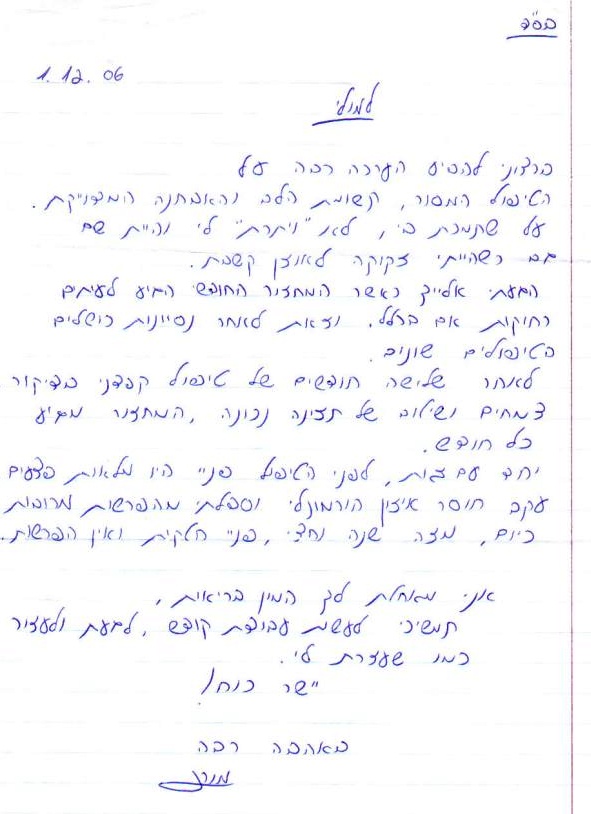 בס"ד
1.12.06
למולי
ברצוני להביע הערכה רבה על
הטיפול המסור, תשומת הלב והאבחנה המדוייקת.
על שתמכת בי, לא "ויתרת" לי והיית שם
גם כשהייתי זקוקה לאוזן קשבת.
הגעתי אלייך כאשר המחזור החודשי הגיע לעיתים
רחוקות אם בכלל. וזאת לאחר נסיונות כושלים
הטיפולים שונים.
לאחר שלישה חודשים של טיפול קפדני בדיקור
צמחים ושילוב של תזינה נכונה, המחזור מגיע
כל חודש.
יחד עם זאת, לפני הטיפול פניי היו מלאות פצעים
עקב חוסר איזון הורמונלי וסבלתי מהפרשות מרובות
כיום, מזה שנה וחצי, פניי חלקית ואין הפרשות.
אני מאחלת לך המון בריאות,
תמשיכי לעשות עבודת קודש, לגעת ולעזור
כמו שעזרת לי.
יישר כוח!
באהבה רבה
מורן